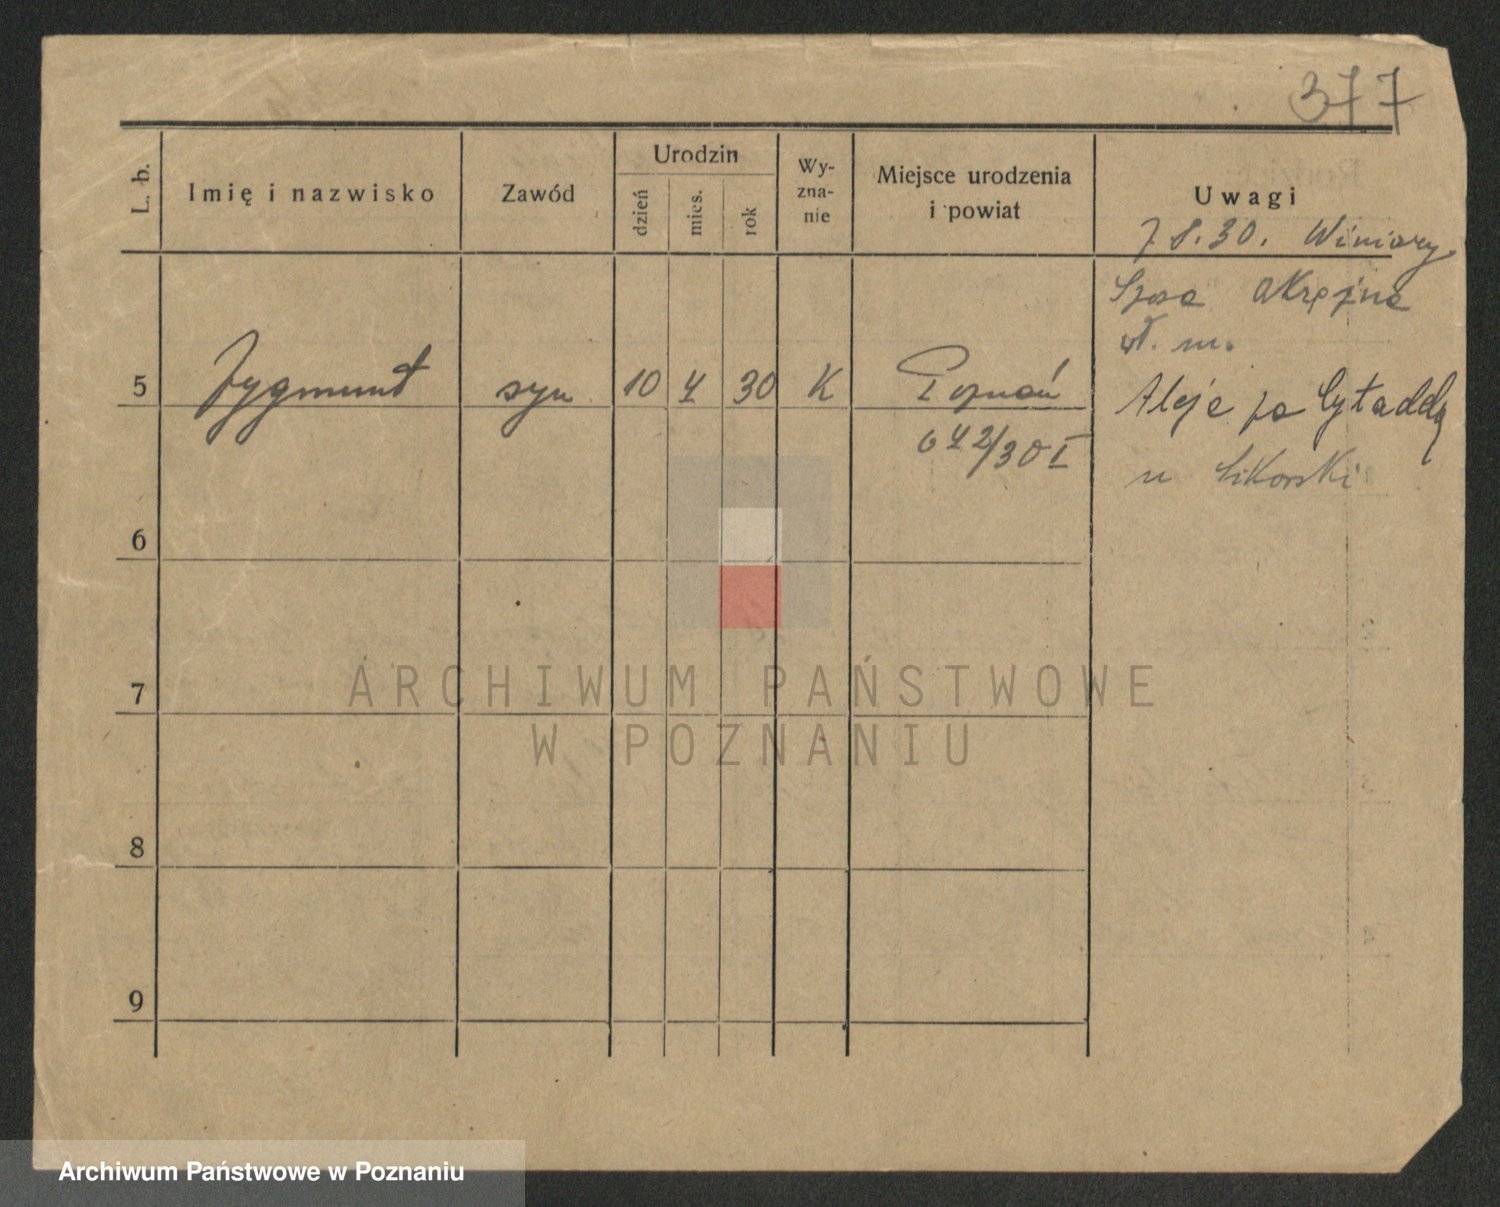 377
L. b.
Imię i nazwisko
Zawód
Urodzin
dzień
mies.
rok
Wy-
zna-
nie
Miejsce urodzenia
i powiat
Uwagi
7.8.30. Winiary
Szosa Okrężna
wł. m.
5 Zygmunt syn 10 4 30 K Poznań
Aleje za Cytaddą
642/30 I
u Sikorski
6
7
8
9
ARCHIWUM PAŃSTWOWE
W POZNANIU
Archiwum Państwowe w Poznaniu